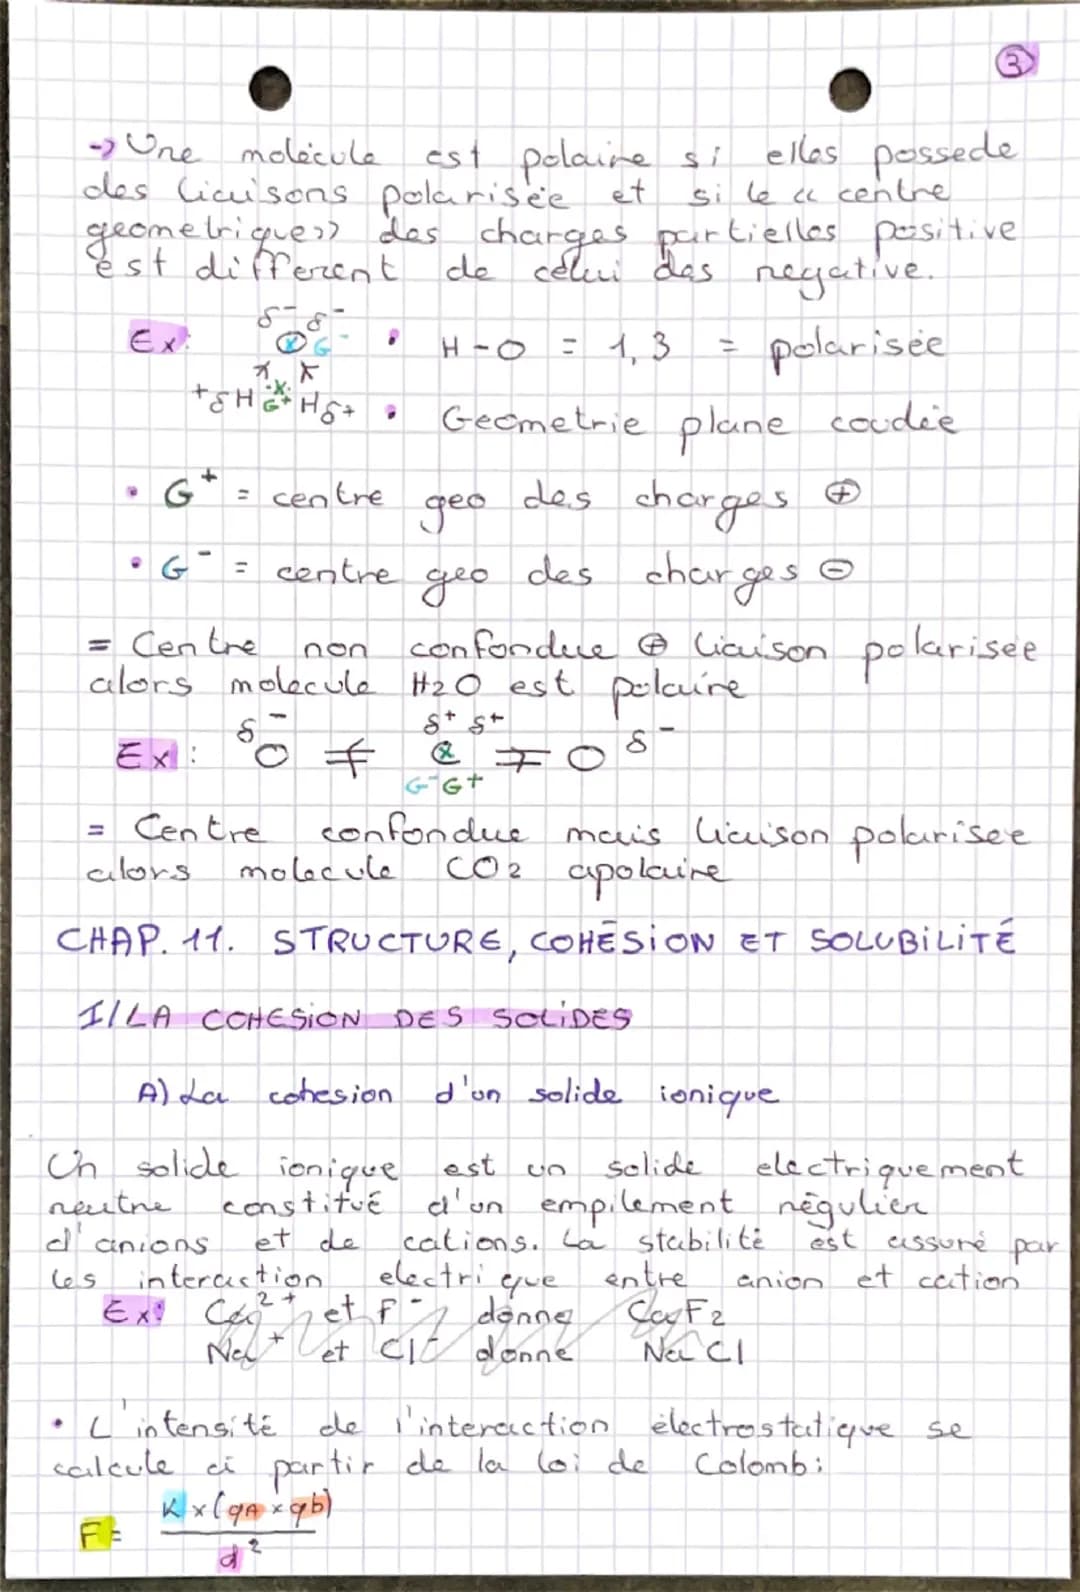 3
-> Une molécule est polaire si elles possede
des liaisons polarisée et si le « centre
geometrique » des charges partielles positive
est different de celui des negative.
δ- δ-
Ex: G- • H-O = 1,3 = polarisée
+δH G+ Hδ+ • Geometrie plane coudée
• G+ = centre geo des charges ⊕
• G- = centre geo des charges ⊖
= Centre non confondue ⊕ liaison polarisée
alors molecule H2O est polaire
δ- δ+ δ+ δ-
Ex: O ≠ C ≠ O
G- G+
= Centre confondue mais liaison polarisee
alors molecule CO2 apolaire
CHAP. 11. STRUCTURE, COHÉSION ET SOLUBILITÉ
I/ LA COHESION DES SOLIDES
A) La cohesion d'un solide ionique
Un solide ionique est un solide electriquement
neutre constitué d'un empilement régulier
d'anions et de cations. La stabilité est assuré par
les interaction electrique entre anion et cation
Ex: Ca2+ et F- donne CaF2
Na+ et Cl- donne NaCl
• L'intensité de l'interaction électrostatique se
calcule à partir de la loi de Colomb:
F = K x (qA x qb)
d2